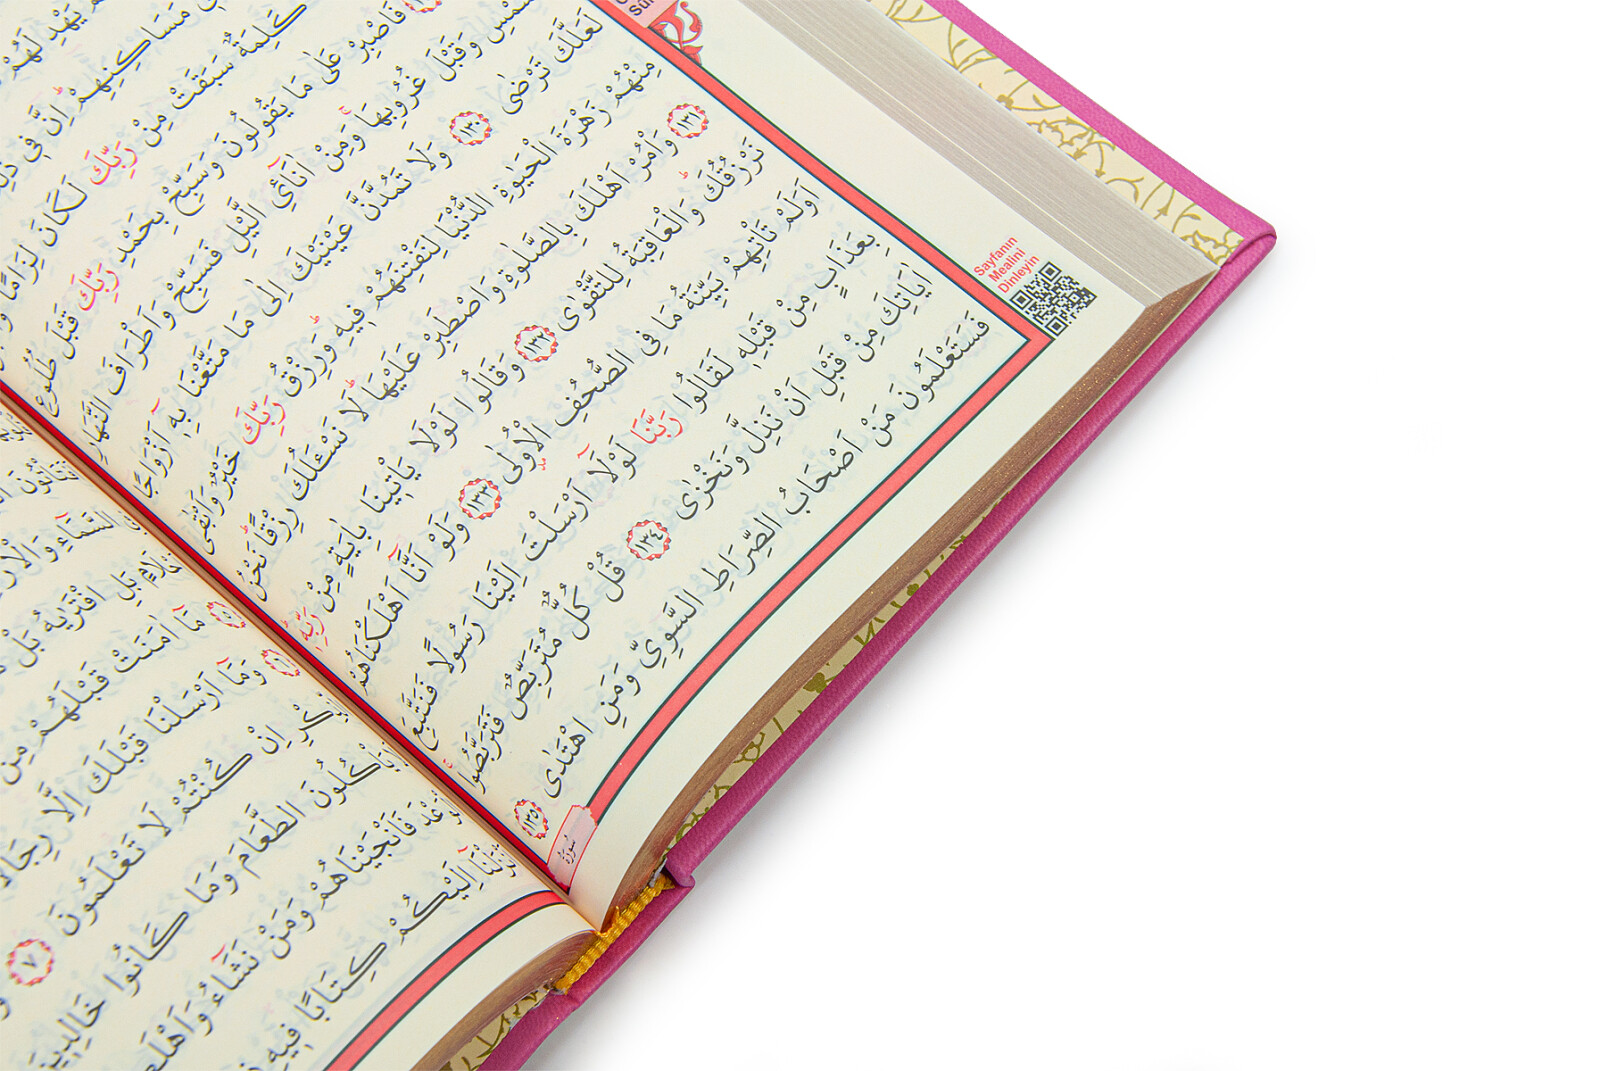 يَهْدِ لَهُمْ
مَسَاكِنِهِمْۜ اِنَّ ف۪ي ذٰلِكَ
كَلِمَةٌ سَبَقَتْ مِنْ رَبِّكَ لَكَانَ لِزَامًا
فَاصْبِرْ عَلٰى مَا يَقُولُونَ وَسَبِّحْ بِحَمْدِ رَبِّكَ قَبْلَ طُلُوعِ
الشَّمْسِ وَقَبْلَ غُرُوبِهَاۚ وَمِنْ اٰنَٓائِ الَّيْلِ فَسَبِّحْ وَاَطْرَافَ النَّهَارِ
لَعَلَّكَ تَرْضٰى ﴿١٣٠﴾ وَلَا تَمُدَّنَّ عَيْنَيْكَ اِلٰى مَا مَتَّعْنَا بِه۪ٓ اَزْوَاجًا
مِنْهُمْ زَهْرَةَ الْحَيٰوةِ الدُّنْيَا لِنَفْتِنَهُمْ ف۪يهِۜ وَرِزْقُ رَبِّكَ خَيْرٌ وَاَبْقٰى
﴿١٣١﴾ وَأْمُرْ اَهْلَكَ بِالصَّلٰوةِ وَاصْطَبِرْ عَلَيْهَاۜ لَا نَسْـَٔلُكَ رِزْقًاۜ نَحْنُ
نَرْزُقُكَۜ وَالْعَاقِبَةُ لِلتَّقْوٰى ﴿١٣٢﴾ وَقَالُوا لَوْلَا يَأْت۪ينَا بِاٰيَةٍ مِنْ رَبِّه۪ۜ
اَوَلَمْ تَأْتِهِمْ بَيِّنَةُ مَا فِي الصُّحُفِ الْاُو۫لٰى ﴿١٣٣﴾ وَلَوْ اَنَّٓا اَهْلَكْنَاهُمْ
بِعَذَابٍ مِنْ قَبْلِه۪ لَقَالُوا رَبَّنَا لَوْلَٓا اَرْسَلْتَ اِلَيْنَا رَسُولًا فَنَتَّبِعَ
اٰيَاتِكَ مِنْ قَبْلِ اَنْ نَذِلَّ وَنَخْزٰى ﴿١٣٤﴾ قُلْ كُلٌّ مُتَرَبِّصٌ فَتَرَبَّصُواۚ
فَسَتَعْلَمُونَ مَنْ اَصْحَابُ الصِّرَاطِ السَّوِيِّ وَمَنِ اهْتَدٰى ﴿١٣٥﴾
سُورَةُ
Sayfanın
Mealini
Dinleyin
السَّمَٓاءِ وَالْاَرْ
بَلِ افْتَرٰيهُ بَلْ
مَٓا اٰمَنَتْ قَبْلَهُمْ مِنْ
﴿٦﴾ وَمَٓا اَرْسَلْنَا قَبْلَكَ اِلَّا رِجَالًا
اِنْ كُنْتُمْ لَا تَعْلَمُونَ ﴿٧﴾
يَأْكُلُونَ الطَّعَامَ وَمَا كَانُوا خَالِد۪ينَ
فَاَنْجَيْنَاهُمْ وَمَنْ نَشَٓاءُ وَاَهْلَكْ
اِلَيْكُمْ كِتَابًا ف۪يهِ